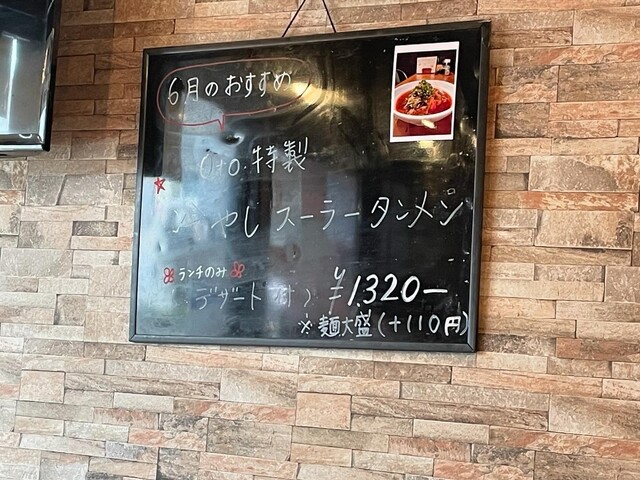 6月のおすすめ
特製
ひやしスーラータンメン
ランチのみ
デザート付
¥1,320-
※麺大盛(+110円)